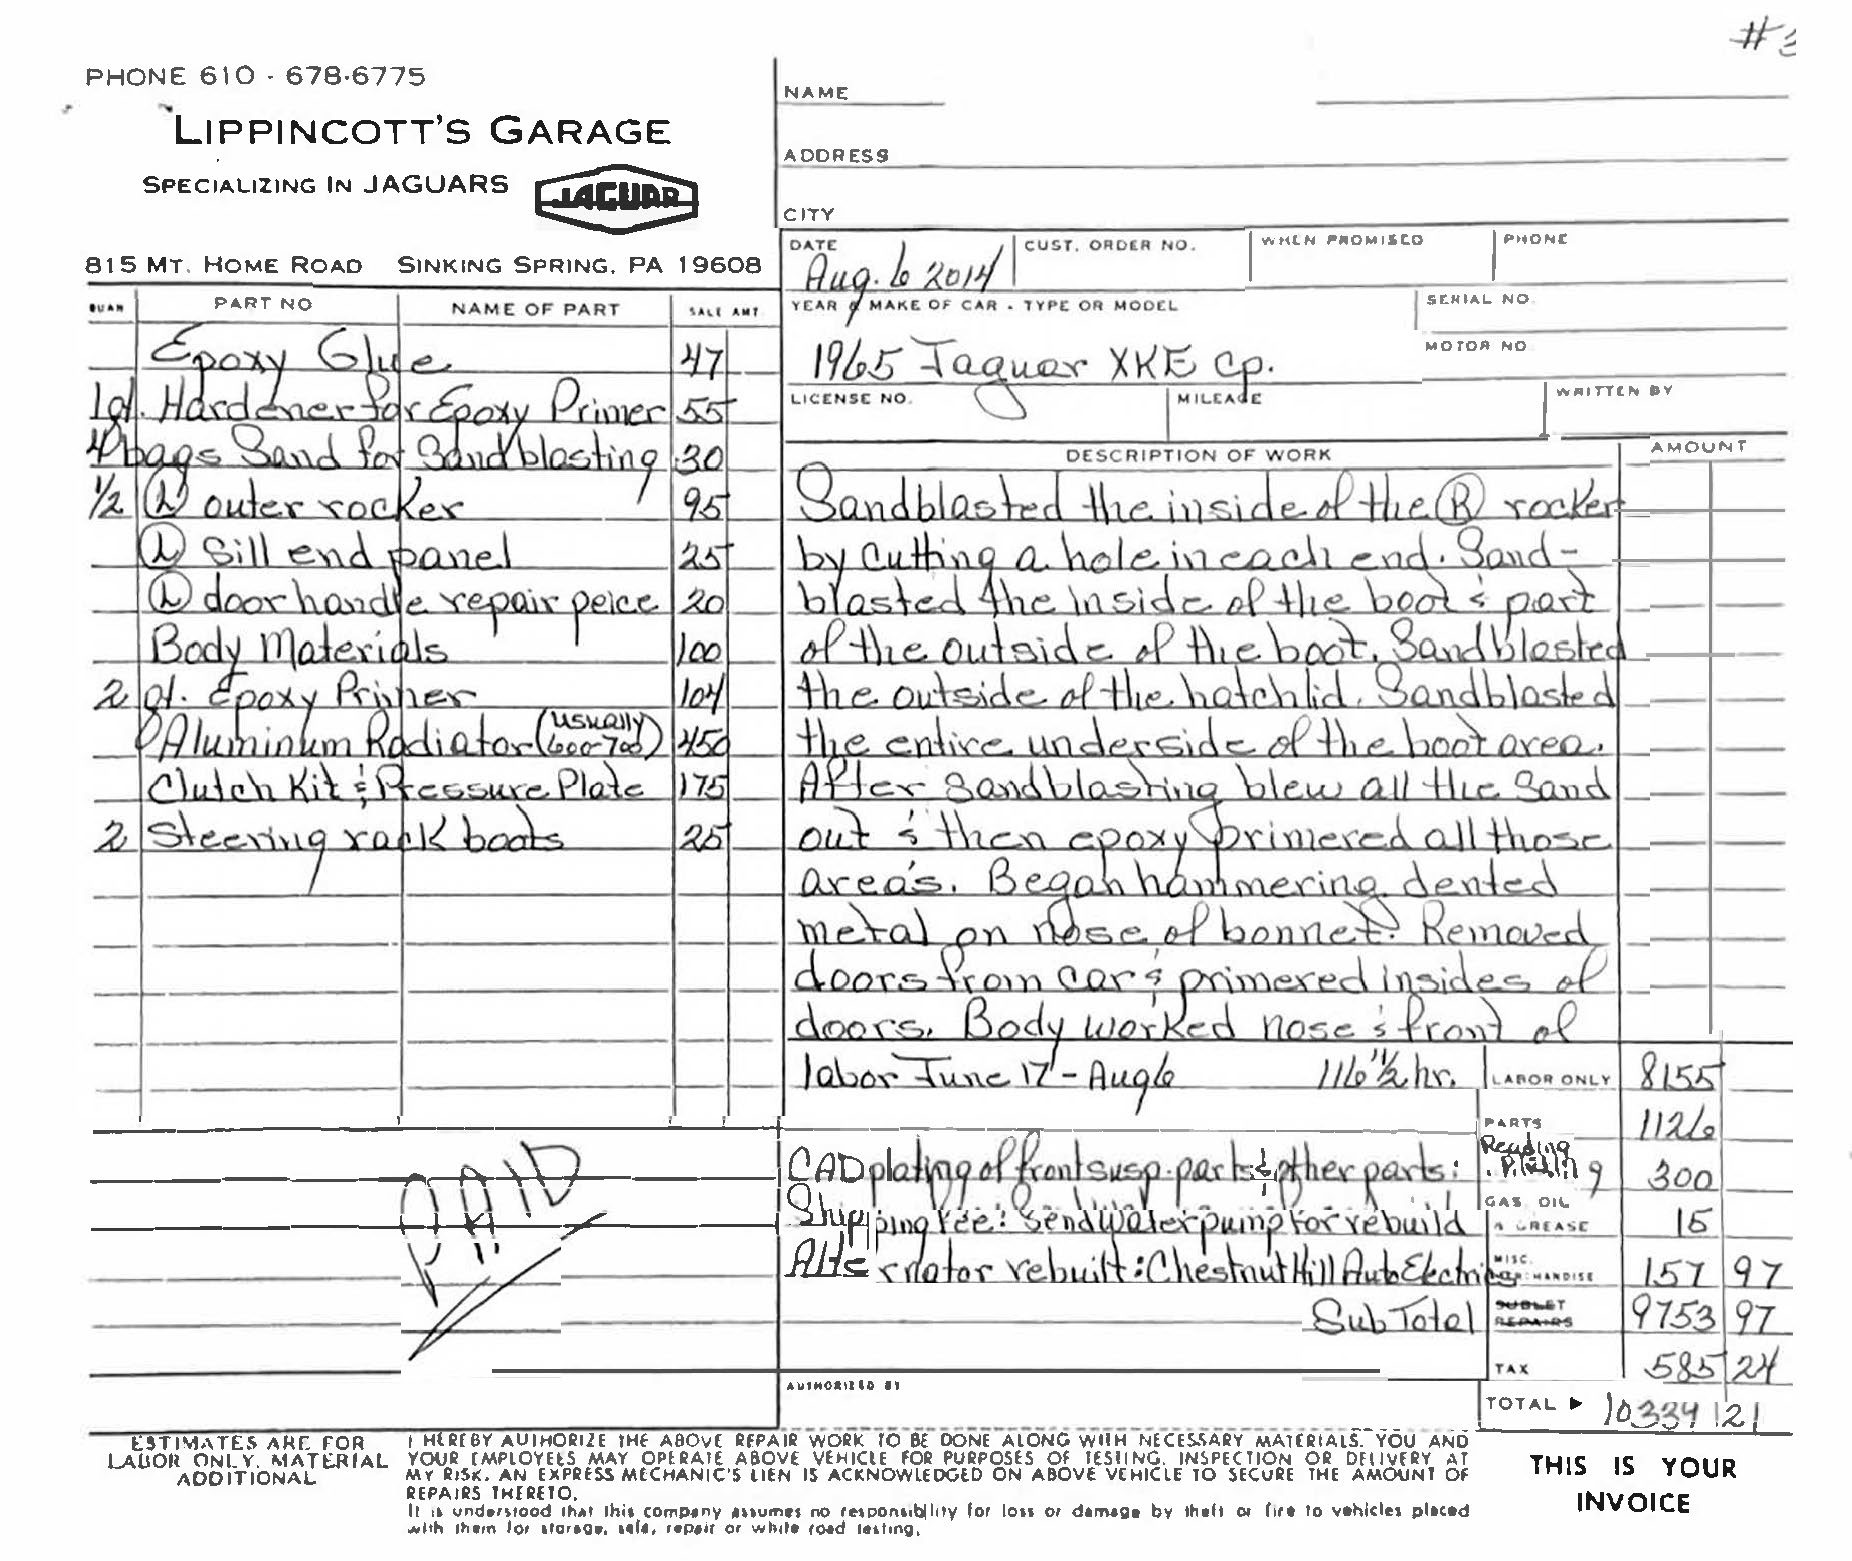 #3
PHONE 610 - 678-6775
LIPPINCOTT'S GARAGE
SPECIALIZING IN JAGUARS JAGUAR
815 MT. HOME ROAD SINKING SPRING, PA 19608
NAME
ADDRESS
CITY
DATE CUST. ORDER NO. WHEN PROMISED PHONE
Aug. 6 2014
YEAR & MAKE OF CAR - TYPE OR MODEL SERIAL NO.
1965 Jaguar XKE cp. MOTOR NO.
LICENSE NO. MILEAGE WRITTEN BY
QUAN PART NO NAME OF PART SALE AMT
Epoxy Glue 47
1 qt. Hardener for Epoxy Primer 55
4 bags Sand for Sandblasting 30
1/2 (L) outer rocker 95
(L) Sill end panel 25
(L) door handle repair peice 20
Body Materials 100
2 qt. Epoxy Primer 104
Aluminum Radiator (usually 600-700) 450
Clutch Kit & Pressure Plate 175
2 Steering rack boots 25
DESCRIPTION OF WORK AMOUNT
Sandblasted the inside of the (R) rocker
by cutting a hole in each end. Sand-
blasted the inside of the boot & part
of the outside of the boot. Sandblasted
the outside of the hatch lid. Sandblasted
the entire underside of the boot area.
After sandblasting blew all the sand
out & then epoxy primered all those
area's. Began hammering dented
metal on nose of bonnet. Removed
doors from car & primered insides of
doors. Body worked nose & front of
labor June 17 - Aug 6 116 1/2 hr. LABOR ONLY 8155
PARTS 1126
CAD plating of front susp. parts & other parts: Reading Plating 300
Shipping fee: Send water pump for rebuild GAS, OIL & GREASE 15
Alternator rebuilt: Chestnut Hill Auto Electric MISC. MERCHANDISE 157 97
Sub Total SUBLET REPAIRS 9753 97
TAX 585 24
AUTHORIZED BY
TOTAL ▶ 10339 21
PAID
ESTIMATES ARE FOR
LABOR ONLY, MATERIAL
ADDITIONAL
I HEREBY AUTHORIZE THE ABOVE REPAIR WORK TO BE DONE ALONG WITH NECESSARY MATERIALS. YOU AND
YOUR EMPLOYEES MAY OPERATE ABOVE VEHICLE FOR PURPOSES OF TESTING, INSPECTION OR DELIVERY AT
MY RISK. AN EXPRESS MECHANIC'S LIEN IS ACKNOWLEDGED ON ABOVE VEHICLE TO SECURE THE AMOUNT OF
REPAIRS THERETO.
It is understood that this company assumes no responsibility for loss or damage by theft or fire to vehicles placed
with them for storage, sale, repair or while road testing.
THIS IS YOUR
INVOICE